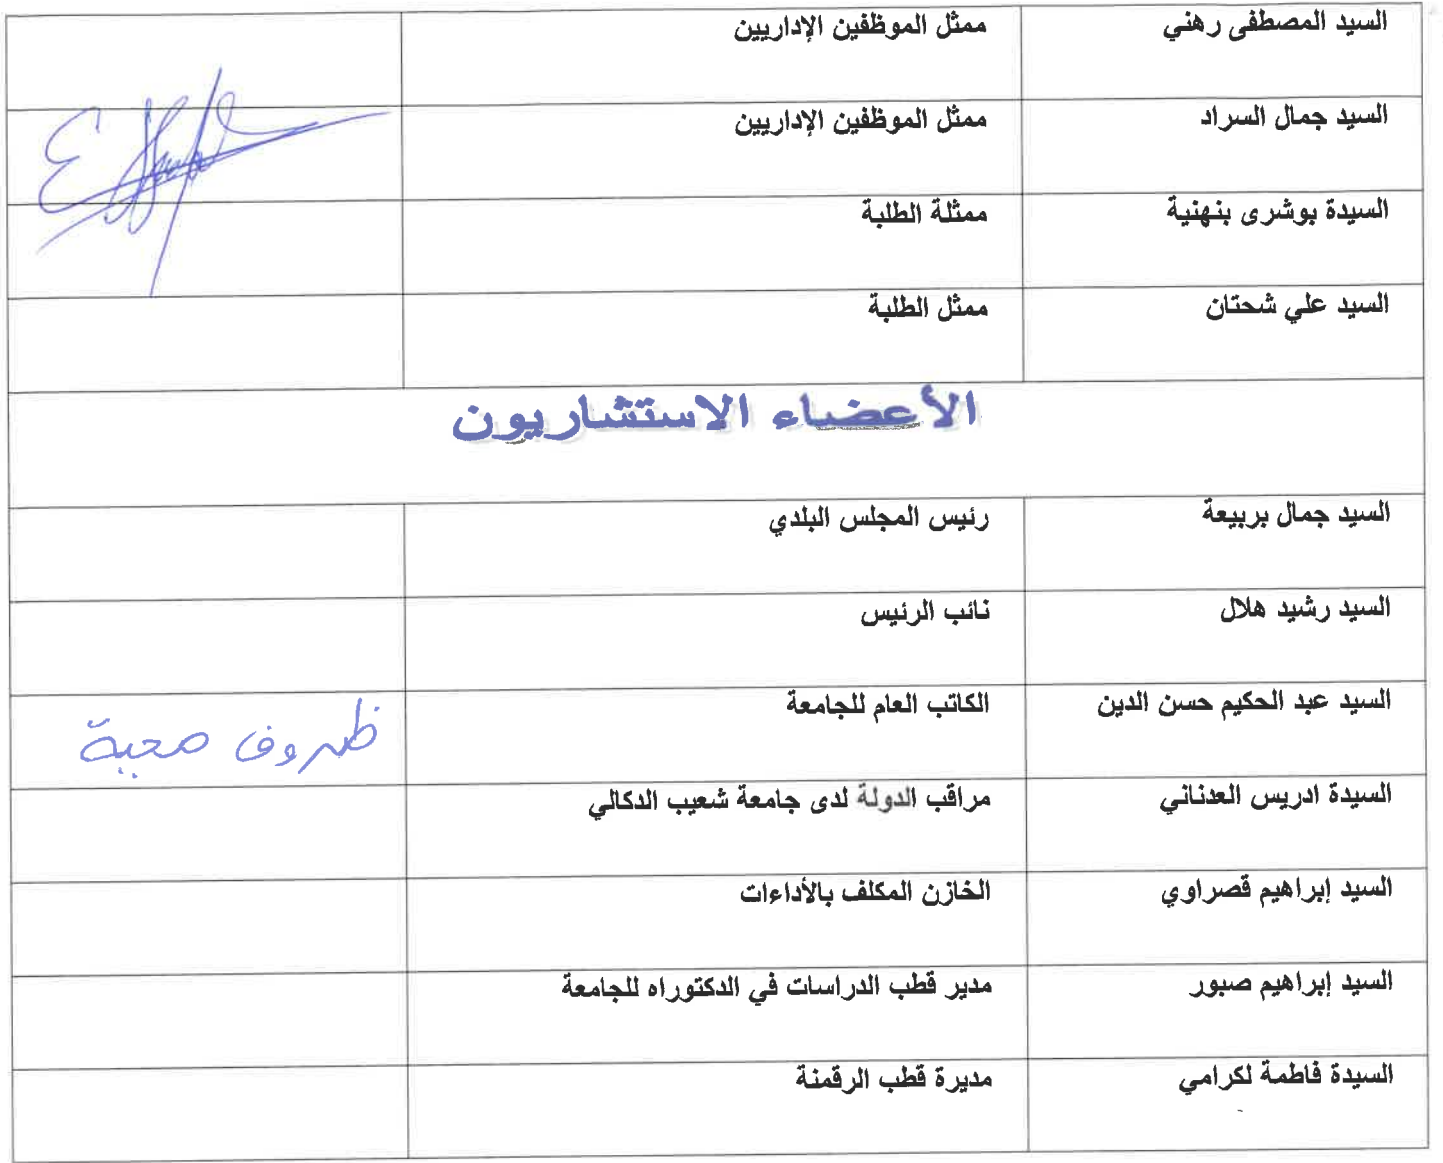 السيد المصطفى رهني ممثل الموظفين الإداريين
السيد جمال السراد ممثل الموظفين الإداريين
السيدة بوشرى بنهنية ممثلة الطلبة
السيد علي شحتان ممثل الطلبة
الأعضاء الاستشاريون
السيد جمال بربيعة رئيس المجلس البلدي
السيد رشيد هلال نائب الرئيس
السيد عبد الحكيم حسن الدين الكاتب العام للجامعة ظروف صحية
السيدة ادريس العدناني مراقب الدولة لدى جامعة شعيب الدكالي
السيد إبراهيم قصراوي الخازن المكلف بالأداءات
السيد إبراهيم صبور مدير قطب الدراسات في الدكتوراه للجامعة
السيدة فاطمة لكرامي مديرة قطب الرقمنة